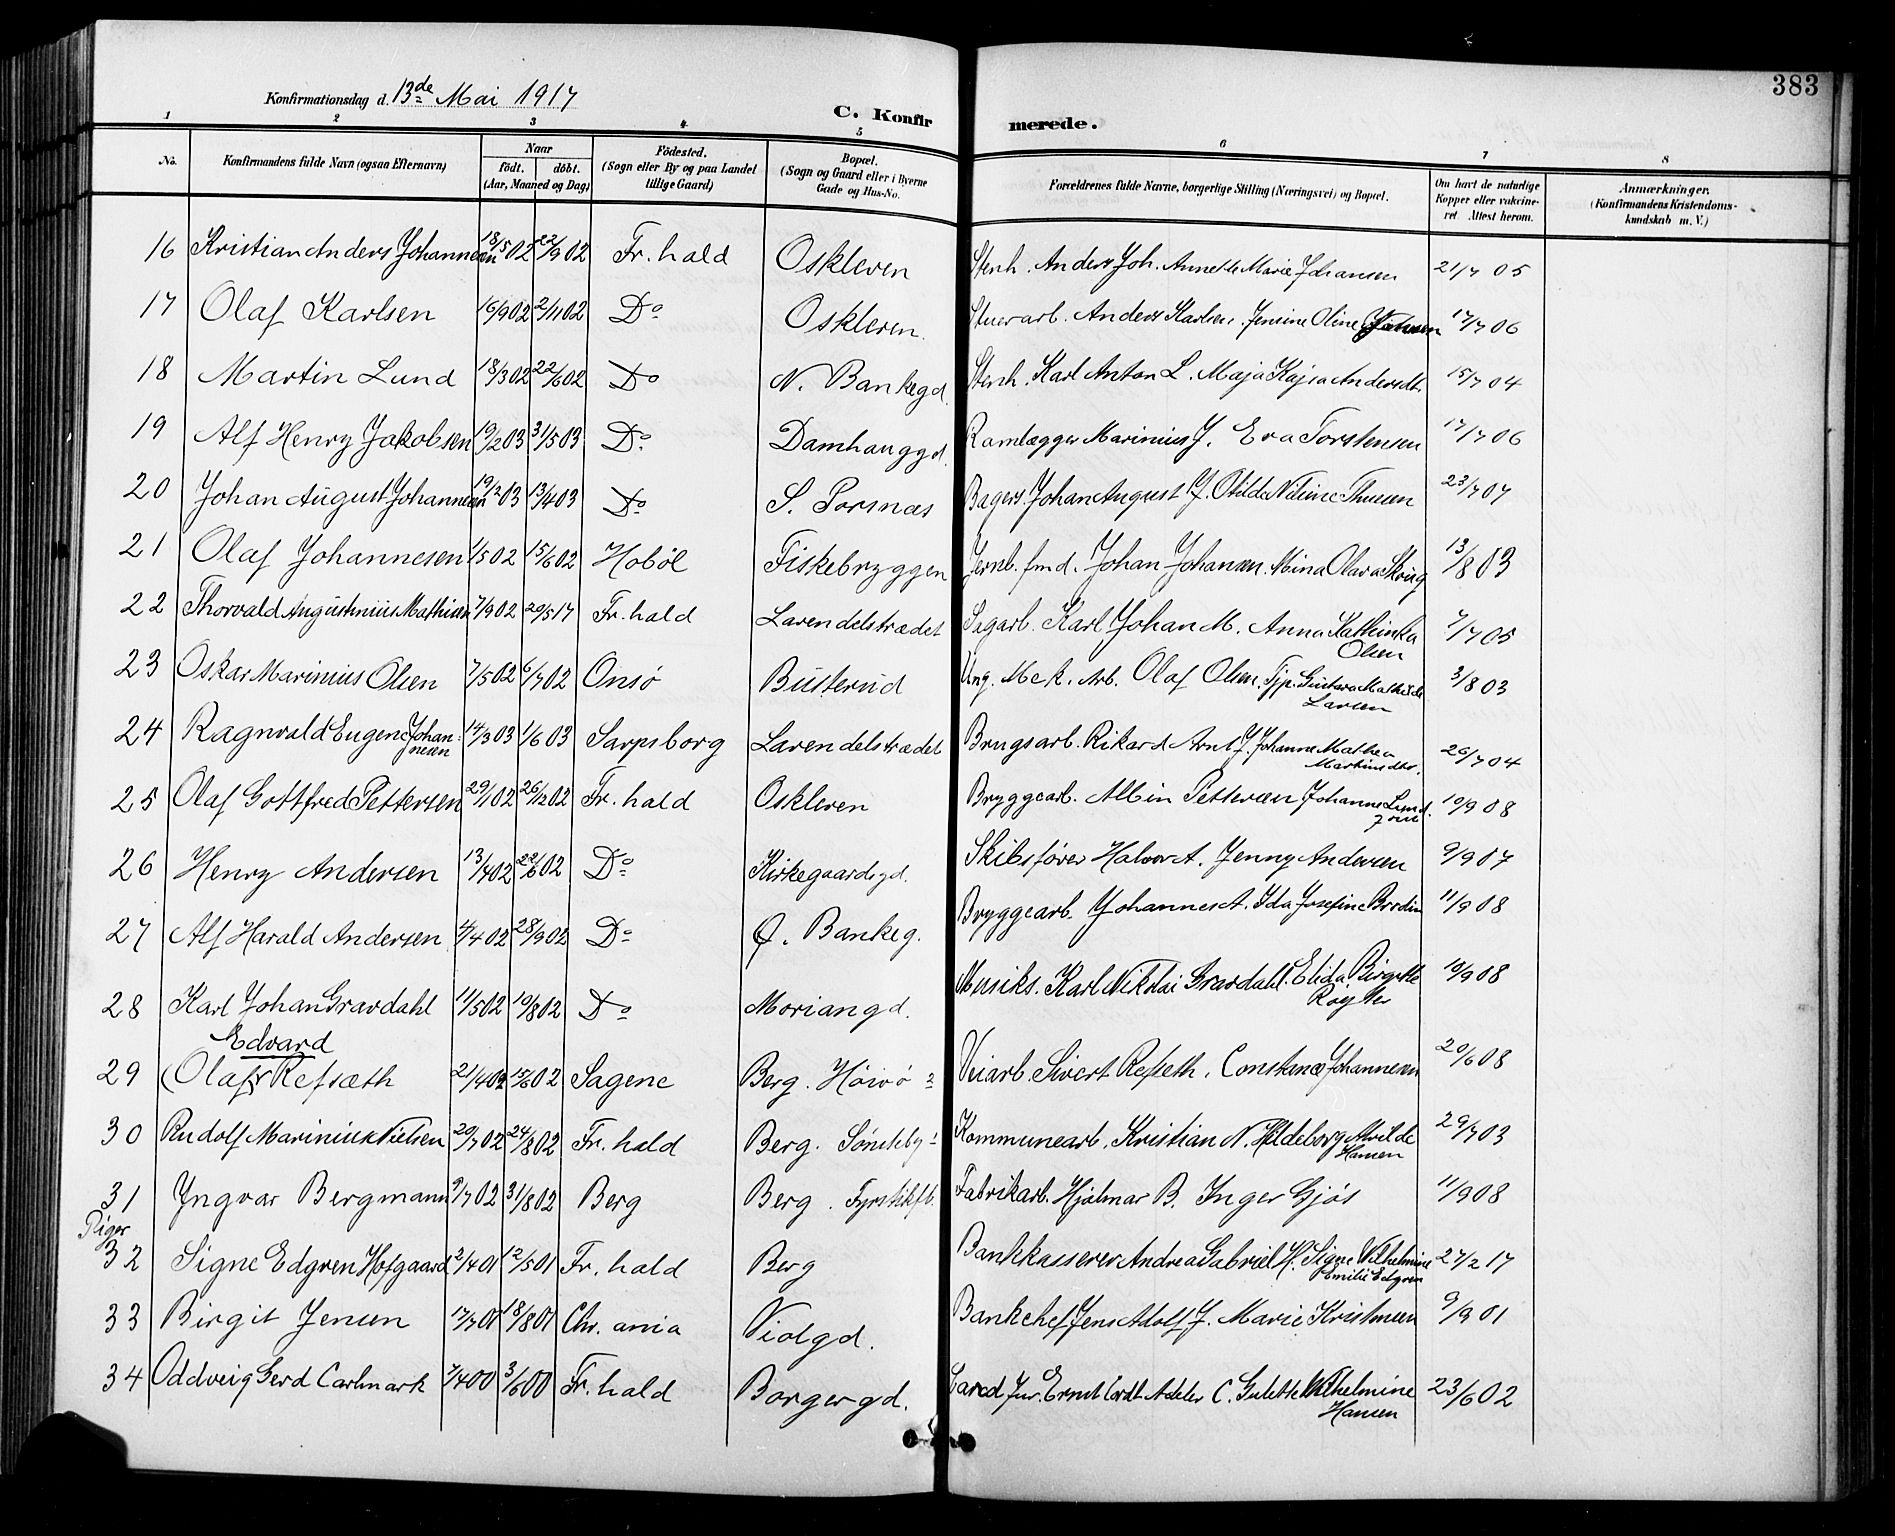 383
Konfirmationsdag d. 13de Mai 1917
C. Konfirmerede.
1 2 3 4 5 6 7 8
No. Konfirmandens fulde Navn (ogsaa Efternavn) Naar født. døbt. (Aar, Maaned og Dag) Fødested. (Sogn eller By og paa Landet tillige Gaard) Bopæl. (Sogn og Gaard eller i Byerne Gade og Hus-No. Forældrenes fulde Navne, borgerlige Stilling (Næringsvei) og Bopæl. Om havt de naturlige Kopper eller vakcineret. Attest herom. Anmærkninger. (Konfirmandens Kristendomskundskab m. V.)
16 Kristian Anders Johannesen 18/5 02 22/9 02 Fr. hald Oskleven Stenh. Anders Joh. Annette Marie Johansen 21/7 05
17 Olaf Karlsen 16/9 02 2/11 02 Do Oskleven. Anders Karlsen, Jensine Oline 17/7 06
18 Martin Lund 18/3 02 22/6 02 Do N. Bankegd. Stenh. Karl Anton L. Maja Kajsa Andersdtr. 15/7 04
19 Alf Henry Jakobsen 19/2 03 31/5 03 Do Damhauggd. Marinius J. Eva Torstensen 17/7 06
20 Johan August Johannesen 19/2 03 13/4 03 Do S. Porsnæs Bagers. Johan August J. Otilde Thuesen 23/7 07
21 Olaf Johannesen 1/5 02 15/6 02 Hobøl Fiskebryggen Jernb. fmd. Johan Johansen. Mina Olava 13/8 03
22 Thorvald Augustinius Mathisen 7/9 02 20/5 17 Fr. hald Lavendelstrædet Sagarb. Karl Johan M. Anna Kathinka Olsen 7/7 05
23 Oskar Marinius Olsen 7/5 02 6/7 02 Onsø Busterud Ung. Mek. Arb. Olaf Olsen. Tjp. Gustava Mathilde Larsen 3/8 03
24 Ragnvald Eugen Johannesen 14/3 03 1/6 03 Sarpsborg Lavendelstrædet Brugsarb. Rikard Arnt J. Johanne Mathea Martinsdtr. 26/7 04
25 Olaf Gottfred Pettersen 29/1 02 26/12 02 Fr. hald Oskleven Bryggearb. Albin Pettersen Johanne 10/9 08
26 Henry Andersen 13/4 02 22/6 02 Do Kirkegaardsgd. Skibsfører Halvor A. Jenny Andersen 9/9 07
27 Alf Harald Andersen 4/4 02 28/9 02 Do Ø. Bankeg. Bryggearb. Johannes A. Ida Josefine Brodin 11/9 08
28 Karl Johan Gravdahl 11/5 02 10/8 02 Do Moriangd. Musiks. Karl Nikolai Gravdahl. Elida Birgitte 10/9 08
Edvard
29 Olaf Refsæth 21/4 02 15/6 02 Sagene Berg. Veiarb. Sivert Refseth, Constance Johannesen 20/6 08
30 Rudolf Marinius Nielsen 20/7 02 24/8 02 Fr. hald Berg. Kommunearb. Kristian N. Hildeborg Alvilde Hansen 29/7 03
31 Yngvar Bergmann 9/7 02 31/8 02 Berg Berg. Fyrstikfb. Fabrikarb. Hjalmar B. Inger Gjøs 11/9 08
Piger
32 Signe Edgren Hofgaard 2/4 01 12/5 01 Fr. hald Berg Bankkasserer Andrea Gabriel H. Signe Vilhelmine Emilie Edgren 27/2 17
33 Birgit Jensen 17/7 01 18/8 01 Chr. ania Violgd. Bankchef Jens Adolf J. Marie Kristensen 9/9 01
34 Oddveig Gerd Carlmark 7/4 00 3/6 00 Fr. hald Borgergd. Cand. Jur. Ernst Adeler C. Gulette Wilhelmine Hansen 23/6 02